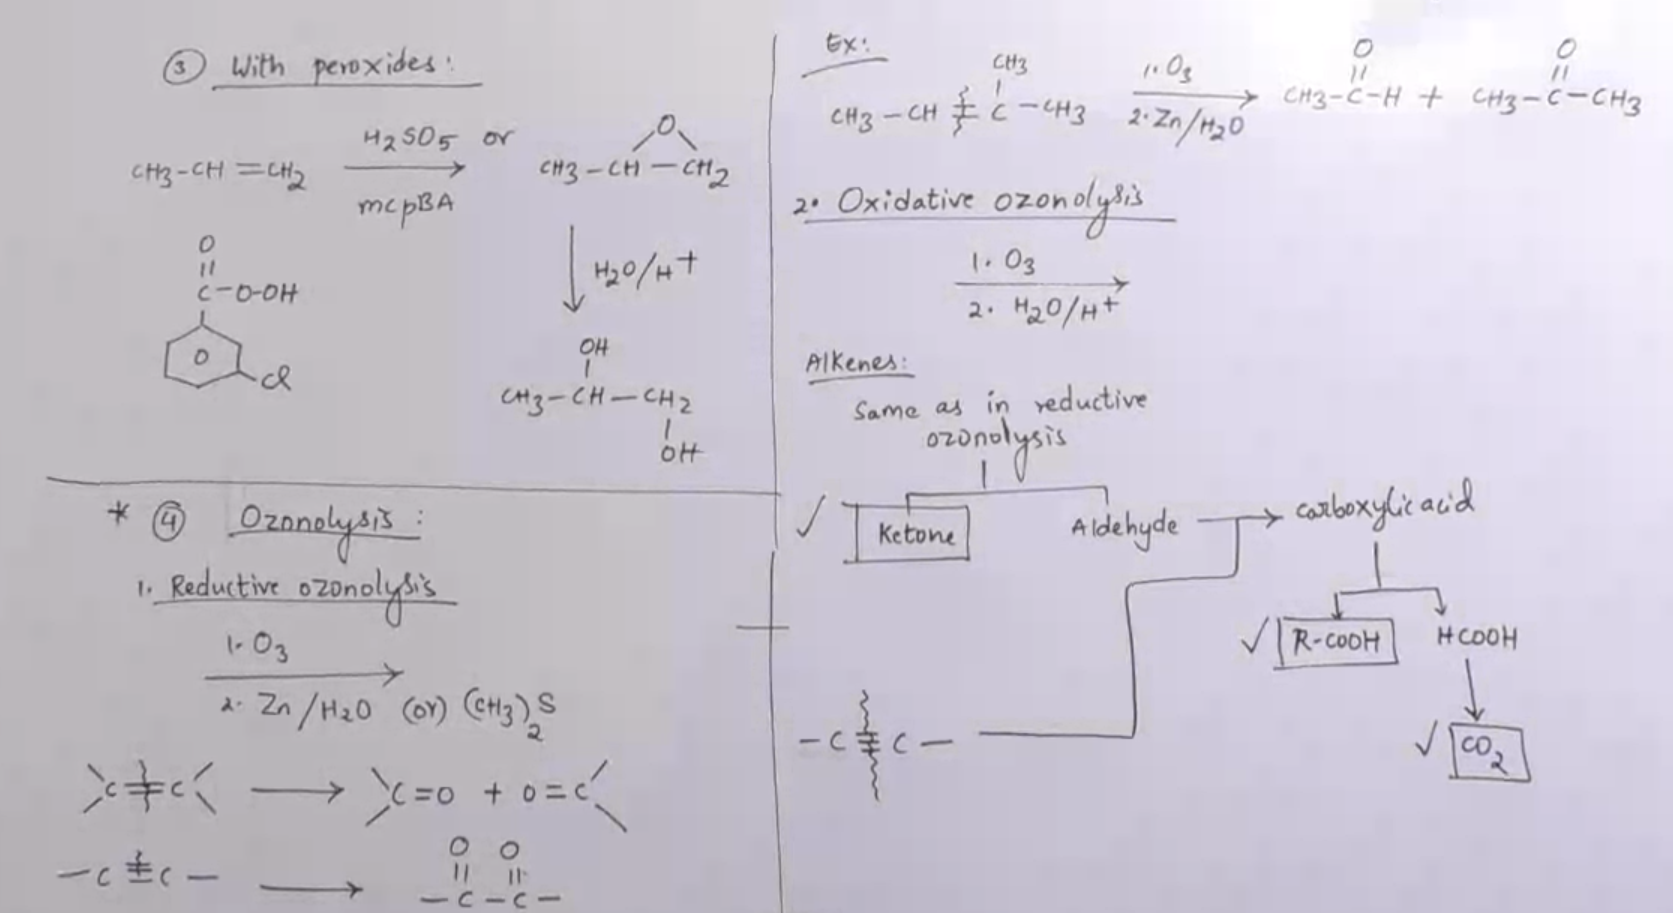 ③ With peroxides:
CH3-CH=CH2
H2SO5 or
mcpBA
O
CH3-CH-CH2
O
||
C-O-OH
O
Cl
H2O/H+
OH
|
CH3-CH-CH2
|
OH
* ④ Ozonolysis:
1. Reductive ozonolysis
1. O3
2. Zn/H2O (or) (CH3)2S
C=C → C=O + O=C
O O
|| ||
-C≡C- → -C-C-
Ex:
CH3
|
CH3-CH=C-CH3
1. O3
2. Zn/H2O
O O
|| ||
CH3-C-H + CH3-C-CH3
2. Oxidative ozonolysis
1. O3
2. H2O/H+
Alkenes:
Same as in reductive
ozonolysis
✓ Ketone
Aldehyde → carboxylic acid
✓ R-COOH
HCOOH
-C≡C-
✓ CO2